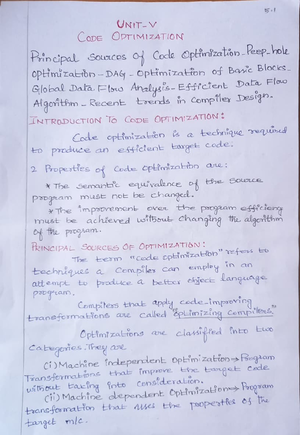 5-1
UNIT-V
CODE OPTIMIZATION
Principal sources of Code Optimization-Peep-hole
optimization-DAG-Optimization of Basic Blocks-
Global Data Flow Analysis-Efficient Data Flow
Algorithm-Recent trends in Compiler Design.
INTRODUCTION TO CODE OPTIMIZATION:
Code optimization is a technique required
to produce an efficient target code.
2 Properties of Code Optimization are:
* The semantic equivalence of the source
program must not be changed.
* The improvement over the program efficiency
must be achieved without changing the algorithm
of the program.
PRINCIPAL SOURCES OF OPTIMIZATION:
The term "Code optimization" refers to
techniques a Compiler can employ in an
attempt to produce a better object language
program.
Compilers that apply code-improving
transformations are called "optimizing Compilers"
Optimizations are classified into two
Categories. They are
(i) Machine independent Optimization → Program
Transformations that improve the target code
without taking into consideration.
(ii) Machine dependent Optimization → Program
transformation that uses the properties of the
target m/c.